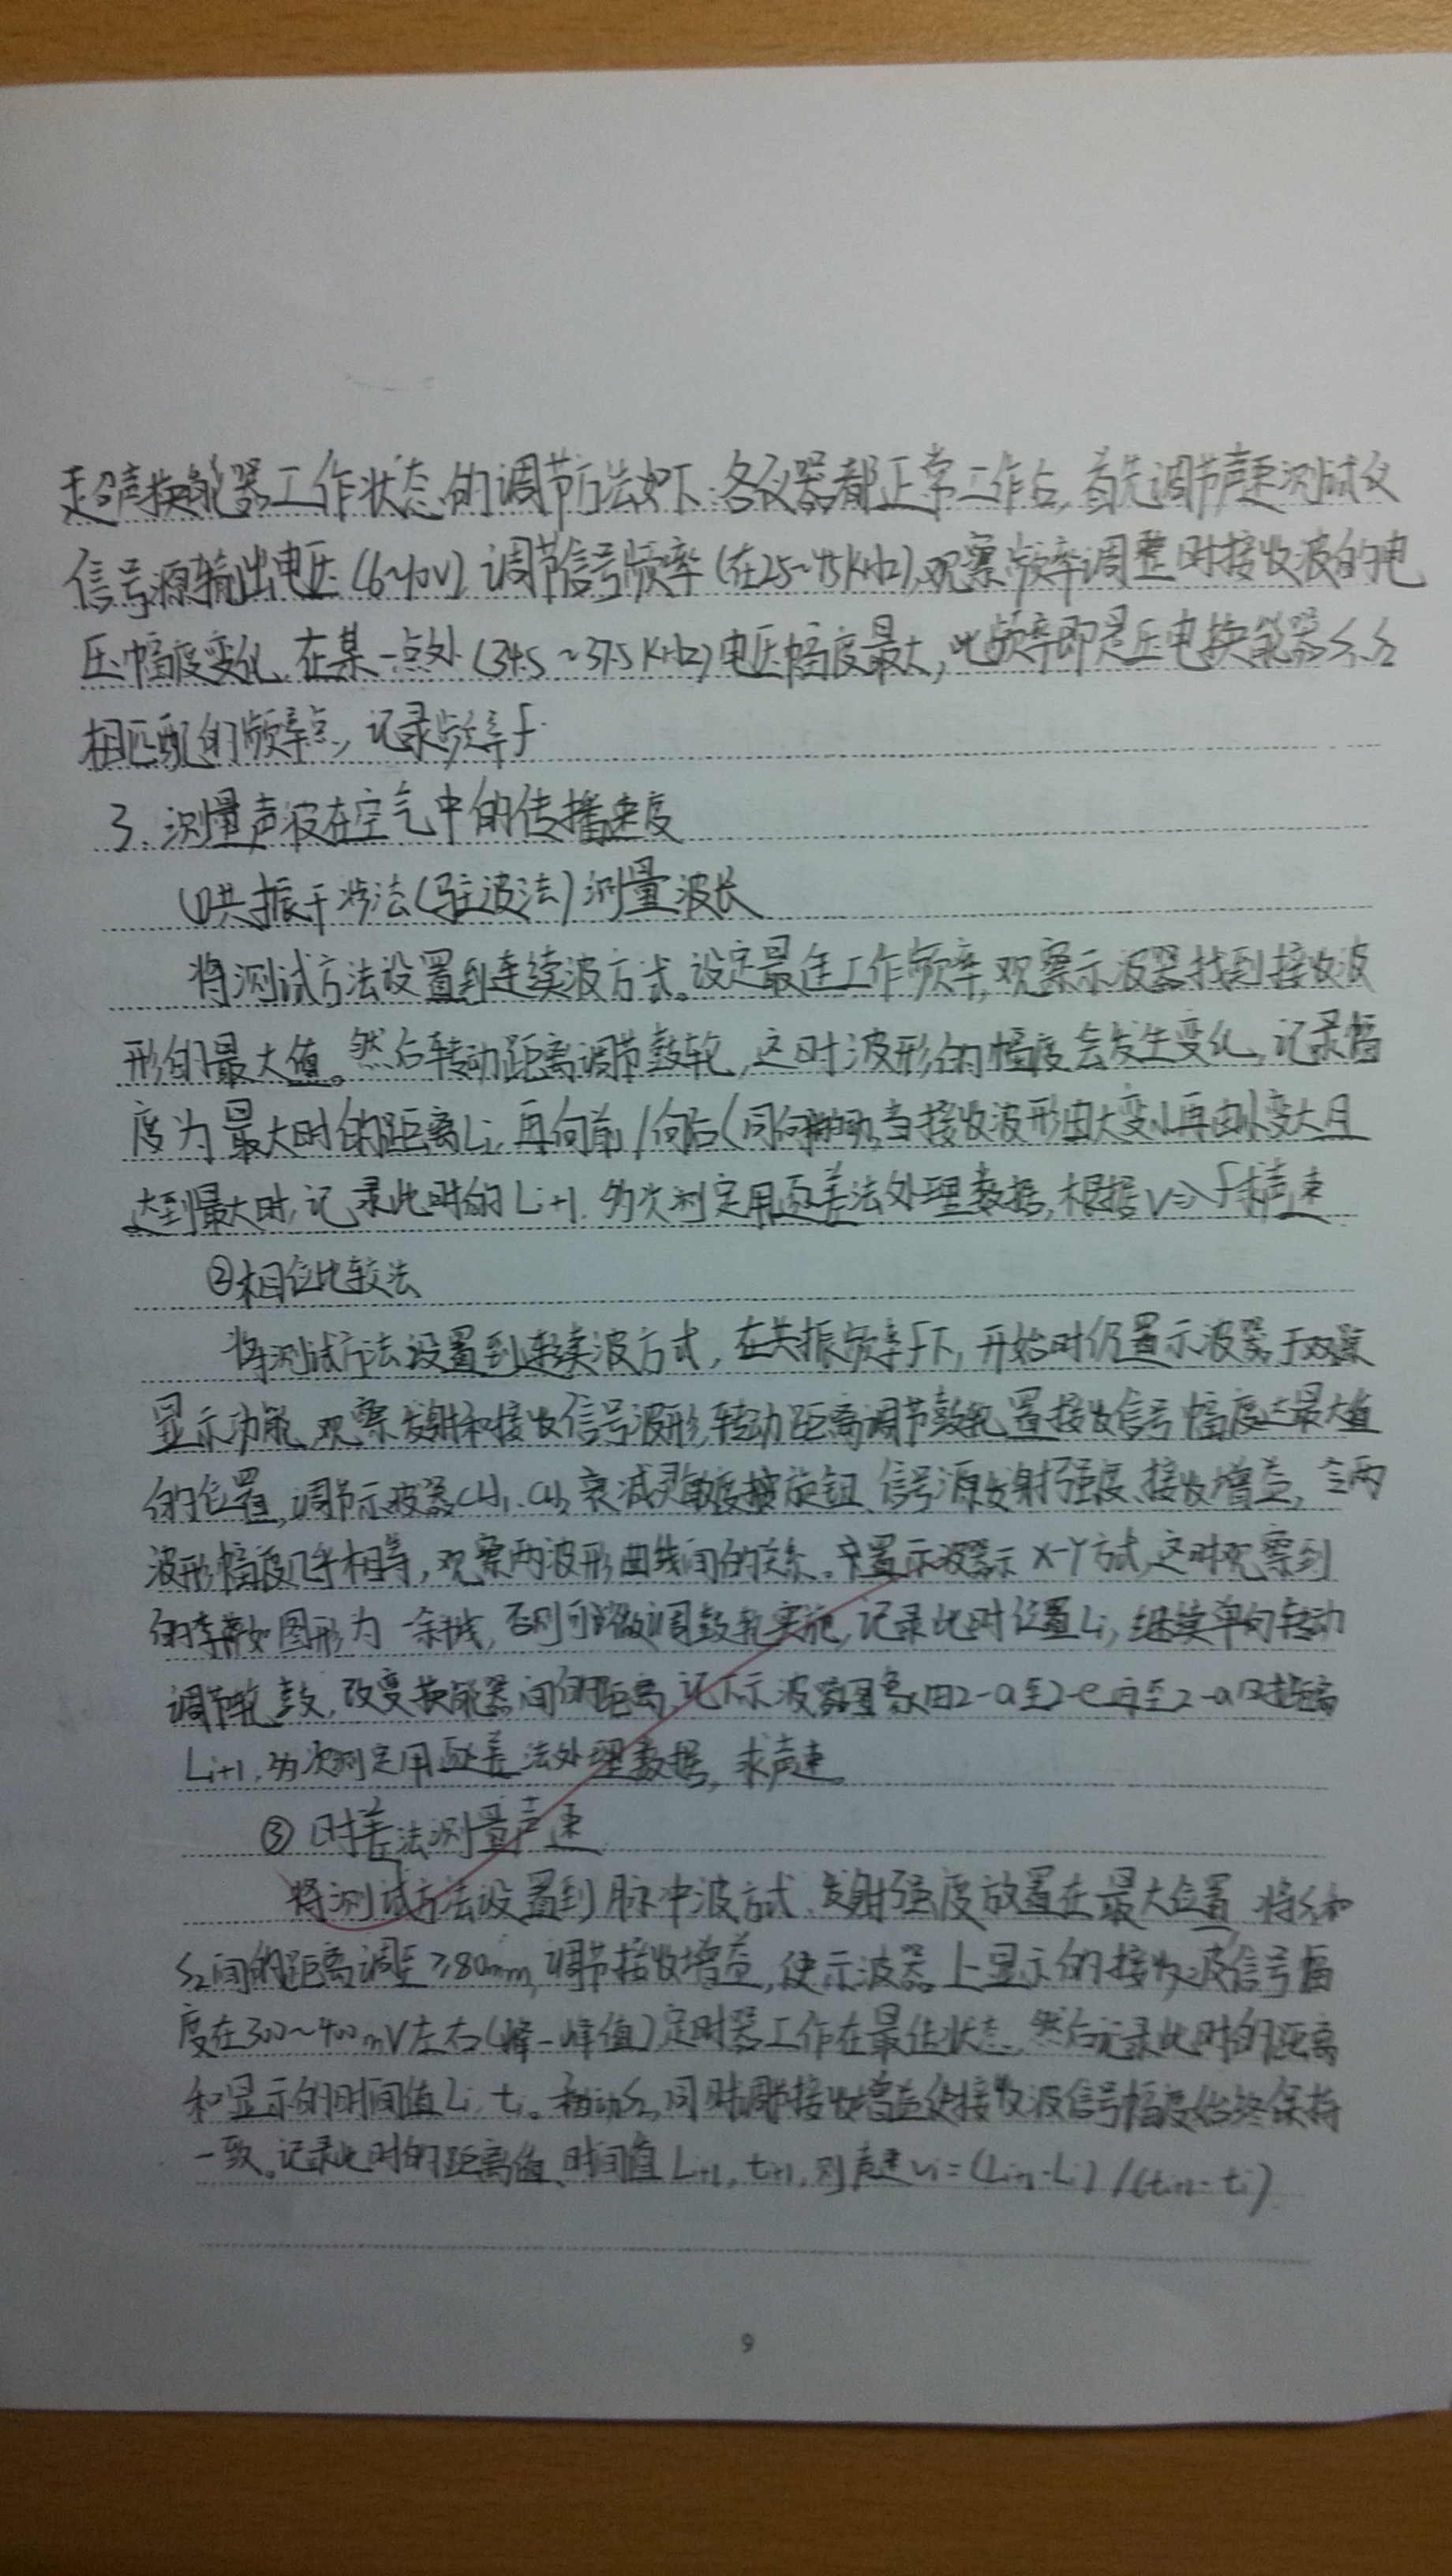 超声换能器工作状态的调节方法如下:各仪器都正常工作后,首先调节声速测试仪
信号源输出电压(6~10V),调节信号频率(在25~45KHz),观察频率调整时接收波的电
压幅度变化,在某一点处(34.5~37.5KHz)电压幅度最大,此频率即是压电换能器S₁、S₂
相匹配的频率点,记录频率f.
3.测量声波在空气中的传播速度
①共振干涉法(驻波法)测量波长
将测试方法设置到连续波方式。设定最佳工作频率,观察示波器找到接收波
形的最大值。然后转动距离调节鼓轮,这时波形的幅度会发生变化,记录幅
度为最大时的距离Li,再向前/向后(同向)移动,当接收波形由大变小再由小变大且
达到最大时,记录此时的Li+1.多次测定用逐差法处理数据,根据V=λf求声速
②相位比较法
将测试方法设置到连续波方式,在共振频率f下,开始时仍置示波器于双踪
显示功能,观察发射和接收信号波形,转动距离调节鼓轮,置接收信号幅度达最大值
的位置,调节示波器CH₁、CH₂衰减灵敏度旋钮、信号源发射强度、接收增益,令两
波形幅度几乎相等,观察两波形曲线间的关系。置示波器示X-Y方式,这时观察到
的李萨如图形为一条线,否则可微调鼓轮实施,记录此时位置Li,继续单向转动
调节轮鼓,改变换能器间的距离,记下示波器图象由2-a至2-e再至2-a时距离
Li+1,多次测定用逐差法处理数据,求声速。
③时差法测量声速
将测试方法设置到脉冲波方式,发射强度放置在最大位置,将S₁和
S₂间的距离调至≥80mm,调节接收增益,使示波器上显示的接收波信号幅
度在300~400mV左右(峰-峰值)定时器工作在最佳状态,然后记录此时的距离
和显示的时间值Li、ti。移动S₂,同时调节接收增益使接收波信号幅度始终保持
一致。记录此时的距离值、时间值Li+1、ti+1,则声速vi=(Li+1-Li)/(ti+1-ti).
9